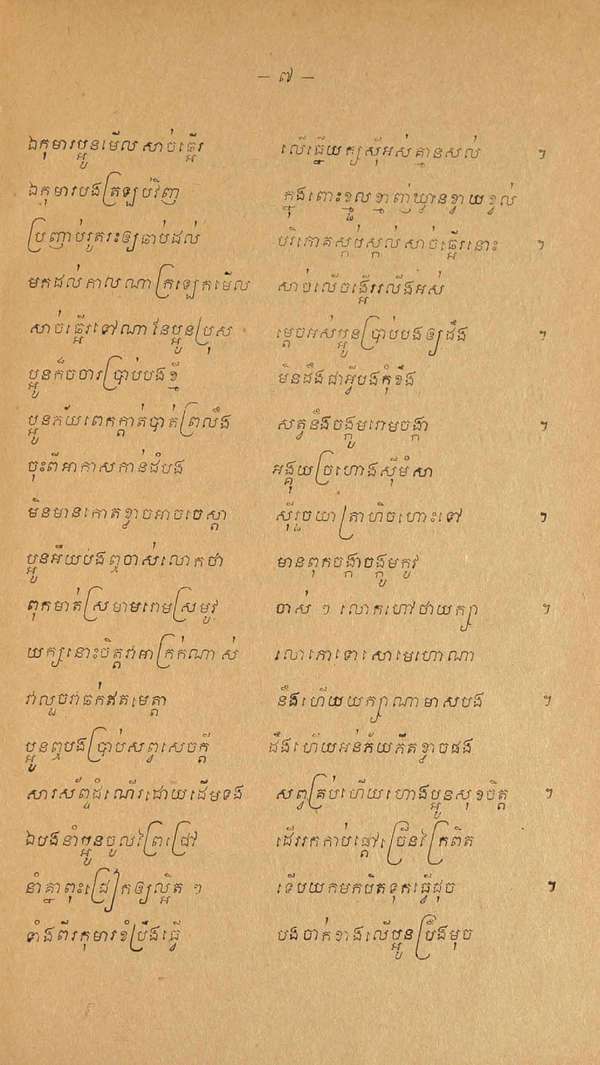 – ៧ –
ឯកុមារប្អូនមើលសាច់ផ្អើរ លើធ្នើយក្សស៊ីអស់គ្មានសល់ ។
ឯកុមារបងត្រឡប់វិញ ក្នុងពោះខ្មួលខ្មាញ់ឃ្លានខ្វាយខ្វល់
ប្រញាប់រូតរះឲ្យឆាប់ដល់ បរិភោគស្កប់ស្កល់សាច់ផ្អើរនោះ ។
មកដល់កាលណាក្រឡេកមើល សាច់លើចង្អើររលីងអស់
សាច់ផ្អើរទៅណានែប្អូនប្រុស ម្ដេចអស់ប្អូនប្រាប់បងឲ្យដឹង ។
ប្អូនក៏ចចារប្រាប់បងខ្ញី មិនដឹងជាអ្វីបងកុំខឹង
ប្អូនភ័យពេកក្កាត់បាត់ព្រលឹង សត្វនឹងចង្កូមរោមចង្កា ។
ចុះពីអាកាសកាន់ដំបង អង្គុយច្រហោងស៊ីមំសា
មិនមានកោតខ្លាចអាចចេស្ដា ស៊ីរួចយាត្រាហិចហោះទៅ ។
ប្អូនអើយបងឮចាស់លោកថា មានពុកចង្កាចង្កូមកូវ
ពុកមាត់ស្រមាមរោមស្រមូវ ចាស់ ៗ លោកហៅថាយក្សា ។
យក្សនោះចិត្តវាអាក្រក់ណាស់ លោភោទោសោមេហោណា
វាលួចវាឆក់ឥតមេត្តា នឹងហើយយក្សាណាមាសបង ។
ប្អូនឮបងប្រាប់សព្វសេចក្ដី ដឹងហើយអន់ភ័យភិតខ្លាចផង
សារស័ព្ទដំណើរដោយដើមទង សព្វគ្រប់ហើយហោងប្អូនសុខចិត្ត ។
ឯបងនាំប្អូនចូលព្រៃជ្រៅ ដើររកកាប់ផ្ដៅច្រើនក្រៃពិត
នាំគ្នាពុះជ្រៀកឲ្យល្អិត ៗ ទើបយកមកបិតទុកធ្វើដុច ។
ទាំងពីរកុមារខំប្រឹងធ្វើ បងចាក់ខាងលើប្អូនប្រឹងមុច